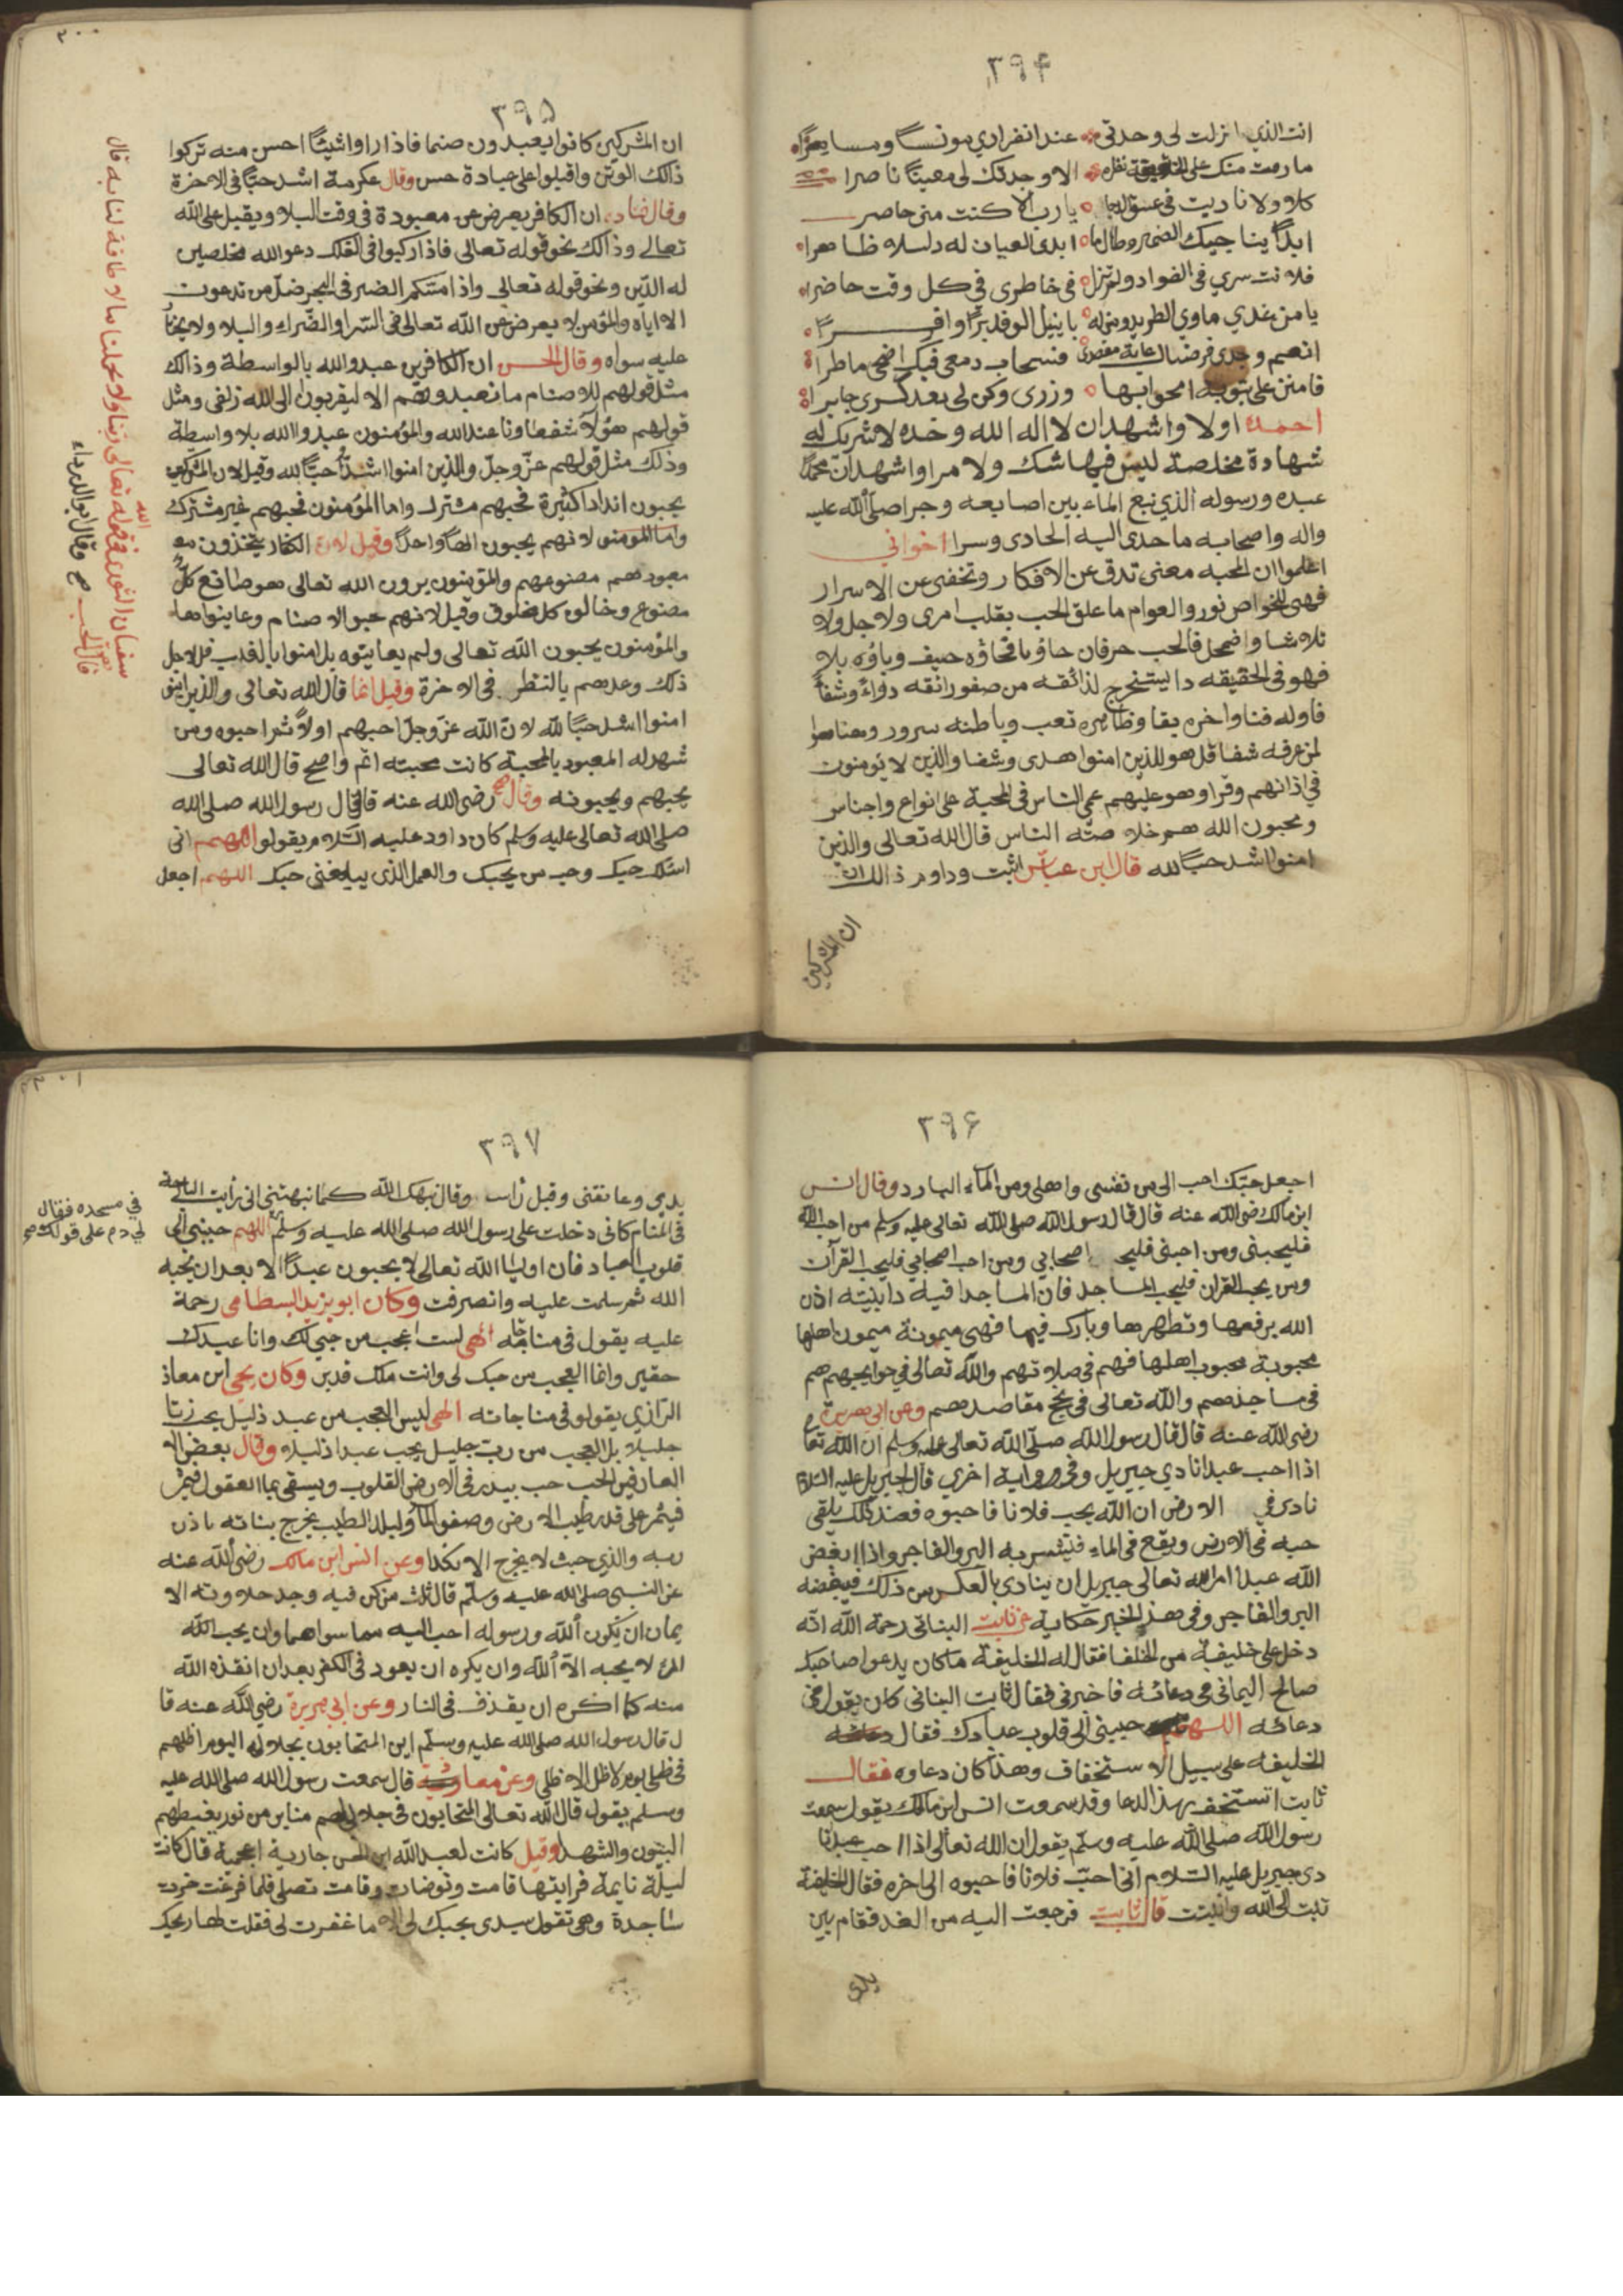 ٣٩۴
انت الذي انزلت لى وحدتى عند انفرادي مونسا ومسايرا
ما رمت منك على الحقيقة نظرة الا وجدتك لى معينا ناصرا
كلا ولا ناديت فى غسق الدجا يا رب الا كنت منى حاضر
ابدا يناجيك الضمير وطال ما ابدى العيان له دليلا ظاهرا
فلانت سري فى الفواد ولم تزل فى خاطرى فى كل وقت حاضرا
يا من غدي ماوي الطريد ومنزله
انعم وجدى فرضاك غاية مقصدى فسحاب دمعى فيك اضحى ماطرا
فامنن على بتوبة امحو ابها وزرى وكن لى بعد كسرى جابرا
احمده اولا واشهد ان لا اله الله وحده لا شريك له
شهادة مخلصة ليس فيها شك ولا مرا واشهد ان محمدا
عبده ورسوله الذي نبع الماء بين اصابعه وجرا صلى الله عليه
واله واصحابه ما حدى اليه الحادى وسرا اخواني
اعلموا ان المحبه معنى تدق عن الافكار وتخفى عن الاسرار
فهى للخواص نور والعوام ما علق الحب بقلب امرى ولا جل ولا
تلاشا واضمحل فالحب حرفان حاؤ باتحاؤه حيف وباؤه بلا
فهو فى الحقيقه دا يستخرج لذائقه من صفو رائقه دواء وشفا
فاوله فنا واخره بقا وظاهره تعب وباطنه سرور وهنا هوا
لمن عرفه شفا قل هو للذين امنوا هدى وشفا والذين لا يومنون
فى اذانهم وقرا وهو عليهم عمى الناس فى المحبة على انواع واجناس
ومحبون الله هم خلاصته الناس قال الله تعالى والذين
امنوا اشد حبا لله قال ابن عباس اثبت وداوم ذالك ان
ان المشركين
٣٠٠
٣٩۵
ان المشركين كانوا يعبدون صنما فاذا راوا شيئا احسن منه تركوا
ذالك الوثن واقبلوا على عبادة حسن وقال عكرمة اشد حبا فى الاخرة
وقال قتاده ان الكافر يعرض عن معبودة فى وقت البلا ويقبل على الله
تعالى وذالك نحو قوله تعالى فاذا ركبوا فى الفلك دعو الله مخلصين
له الدين ونحو قوله تعالى واذا مسكم الضر فى البحر ضل من تدعون
الا اياه والمؤمن لا يعرض عن الله تعالى فى السرا والضراء والبلا ولا يختار
عليه سواه وقال الحسن ان الكافرين عبدو الله بالواسطة وذالك
مثل قولهم للاصنام ما نعبدوهم الا ليقربون الى الله زلفى ومثل
قولهم هؤلاء شفعاونا عند الله والمؤمنون عبدوا الله بلا واسطة
وذلك مثل قولهم عز وجل والذين امنوا اشد حبا لله وقيل لان المشركين
يحبون اندادا كثيرة فحبهم مشترك واما المؤمنون فحبهم غير مشترك
واما المومنو لانهم يحبون الها واحدا وقيل لان الكفار يتخذون مع
معبودهم مصنوعهم والمؤمنون يرون الله تعالى هو صانع كل
مصنوع وخالق كل مخلوق وقيل لانهم حبو الاصنام وعاينوها
والمؤمنون يحبون الله تعالى ولم يعاينوه بل امنوا بالغيب فلاجل
ذلك وعدهم بالنظر فى الاخرة وقيل انما قال الله تعالى والذين امنو
امنوا اشد حبا لله لان الله عز وجل احبهم اولا ثم احبوه ومن
شهد له المعبود بالمحبة كانت محبته اتم واصح قال الله تعالى
يحبهم ويحبونه وقال رضى الله عنه قال قال رسول الله صلى الله
صلى الله تعالى عليه وسلم كان داود عليه السلام يقولو اللهم انى
اسئلك حبك وحب من يحبك والعمل الذى يبلغنى حبك اللهم اجعل
سفيان الثورى فى قوله تعالى ربنا ولا تحملنا ما لا طاقة لنا به قال
الله
قال الحب
صح وقال ابو الدرداء
٣٩۶
اجعل حبك احب الى من نفسى واهلى ومن الماء البارد وقال انس
ابن مالك رضى الله عنه قال قال رسول الله صلى الله تعالى عليه وسلم من احب الله
فليحبنى ومن احبنى فليحب اصحابي ومن احب اصحابي فليحب القرآن
ومن يحب القران فليحب المساجد فان المساجد افنية دابنيته اذن
الله برفعها وتطهرها وبارك فيها فهى ميمونة ميمون اهلها
محبوبة محبوب اهلها فهم فى صلاتهم والله تعالى فى حوايجهم هم
فى مساجدهم والله تعالى فى نجح مقاصدهم وعن ابى هريرة
رضى الله عنه قال قال رسول الله صلى الله تعالى عليه وسلم ان الله تعا
اذا احب عبدا نادي جبريل وفى رواية اخرى قال لجبريل عليه السلام
نادى فى الارض ان الله يحب فلانا فاحبوه فعند ذلك يلقى
حبه فى الارض ويقع فى الماء فيشربه البر والفاجر واذا ابغض
الله عبدا امر الله تعالى جبريل ان ينادى بالعكس من ذلك فيبغضه
البر والفاجر وفى هذ الخبر حكاية عن ثابت البنانى رحمة الله انه
دخل على خليفة من الخلفا فقال له الخليفة ما كان يدعوا صاحبك
صالح اليمانى فى دعائه فاخبرنى فقال ثابت البنانى كان يقول فى
دعائه اللهم حببنى الى قلوب عبادك فقال
الخليفه على سبيل الاستخفاف وهذا كان دعاوه فقال
ثابت اتستخف بهذ الدعا وقد سمعت انس ابن مالك يقول سمعت
رسول الله صلى الله عليه وسلم يقول ان الله تعالى اذا احب عبدا نا
دى جبريل عليه السلام انى احب فلانا فاحبوه الى اخره فقال الخليفة
تبت الى الله وانيت قال ثابت فرجعت اليه من الغد فقام بين
يدى
٣٠١
٣٩٧
يدى وعانقنى وقبل راسى وقال نبهك الله كما نبهتنى انى رأيت البارحة
فى المنام كانى دخلت على رسول الله صلى الله عليه وسلم اللهم حببنى الى
قلوب العباد فان اوليا الله تعالى لا يحبون عبدا الا بعد ان يحبه
الله ثم سلمت عليه وانصرفت وكان ابو يزيد البسطامى رحمة
عليه يقول فى مناجاته الهى لست اعجب من حبي لك وانا عبدك
حقير وانما العجب من حبك لى وانت ملك قدير وكان يحى ابن معاذ
الرازي يقولو فى مناجاته الهى ليس العجب من عبد ذليل يحب ربا
جليلا بل العجب من رب جليل يحب عبدا ذليلا وقال بعض الا
العارفين الحب حب يبذر فى الارض القلوب ويسقى بما العقول فيثمر
فيثمر على قدر طيب الارض وصفو الماء والبلد الطيب يخرج بناته باذن
ربه والذي خبث لا يخرج الا نكدا وعن انس ابن مالك رضى الله عنه
عن النبى صلى الله عليه وسلم قال ثلث من كن فيه وجد حلاوته الا
يمان ان يكون الله ورسوله احب اليه مما سواهما وان يحب الله
المرء لا يحبه الا الله وان يكره ان يعود فى الكفر بعد ان انقذه الله
منه كما اكره ان يقذف فى النار وعن ابي هريرة رضى الله عنه قا
ل قال رسول الله صلى الله عليه وسلم اين المتحابون بجلالى اليوم اظلهم
فى ظلى يوم لا ظل الا ظلى وعن معاذ قال سمعت رسول الله صلى الله عليه
وسلم يقول قال الله تعالى المتحابون فى جلالى لهم منابر من نور يغبطهم
النبيون والشهدا وقيل كانت لعبد الله ابن الحسن جارية اعجمية قال كانت
ليلة نايمة فرايتها قامت وتوضات وقامت تصلى فلما فرغت خرت
ساجدة وهى تقول سيدى بحبك لى الا ما غفرت لى فقلت لها بحبك
فى مسجده فقال
لى دم على قولك صح